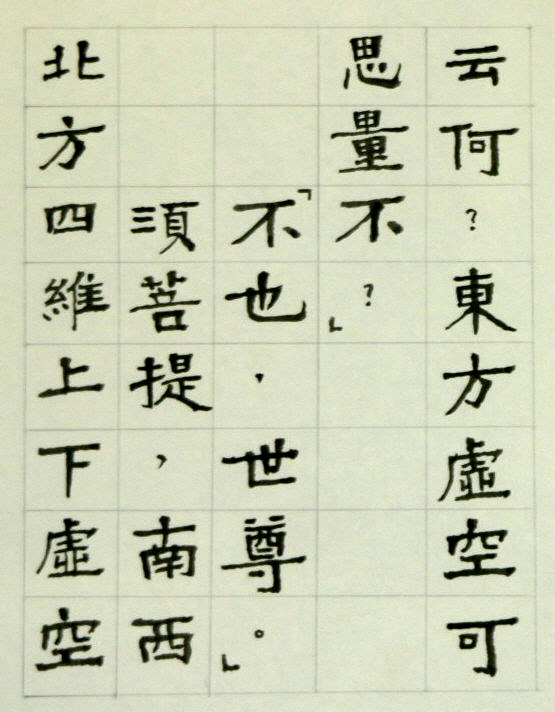 云何？東方虛空可
思量不？」
「不也，世尊。」
須菩提，南西
北方四維上下虛空